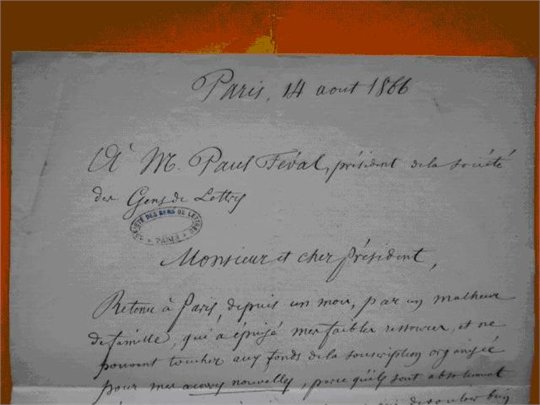 Paris, 14 aout 1866
À M. Paul Féval, président de la société
des Gens de Lettres
SOCIÉTÉ DES GENS DE LETTRES
PARIS
Monsieur et cher président,
Retenu à Paris, depuis un mois, par un malheur
de famille, qui a épuisé mes faibles ressources, et ne
pouvant toucher aux fonds de la souscription organisée
pour mes nouvelles, parce qu'ils sont absolument